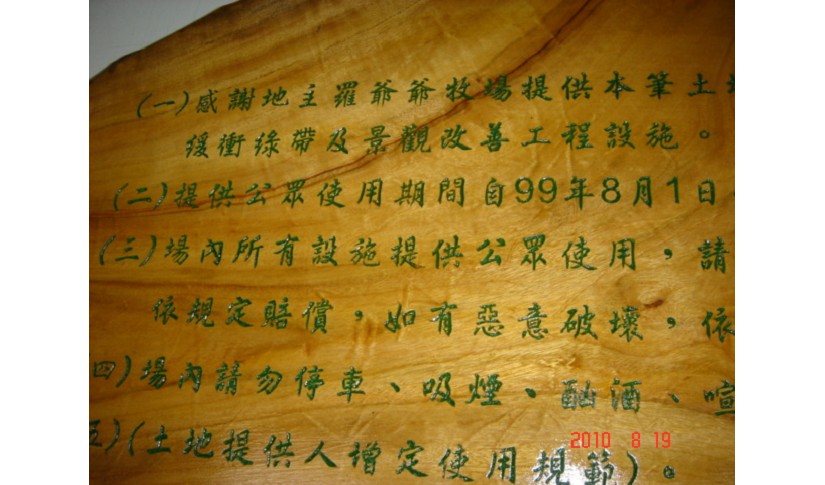 (一)感謝地主羅爺爺牧場提供本筆土
緩衝綠帶及景觀改善工程設施。
(二)提供公眾使用期間自99年8月1日
(三)場內所有設施提供公眾使用，請
依規定賠償，如有惡意破壞，依
四)場內請勿停車、吸煙、酗酒、喧
五)(土地提供人增定使用規範)。
2010 8 19